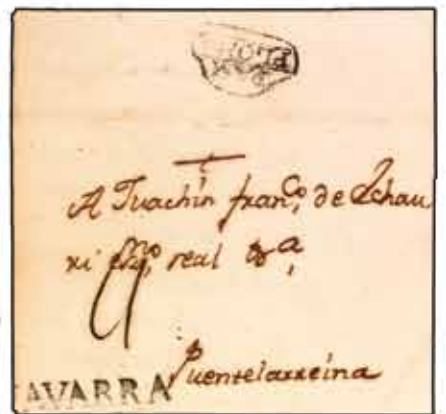 t
A Juachin fran.co de Echau
ri ess.no real &.a
Puentelarreina
AVARRA